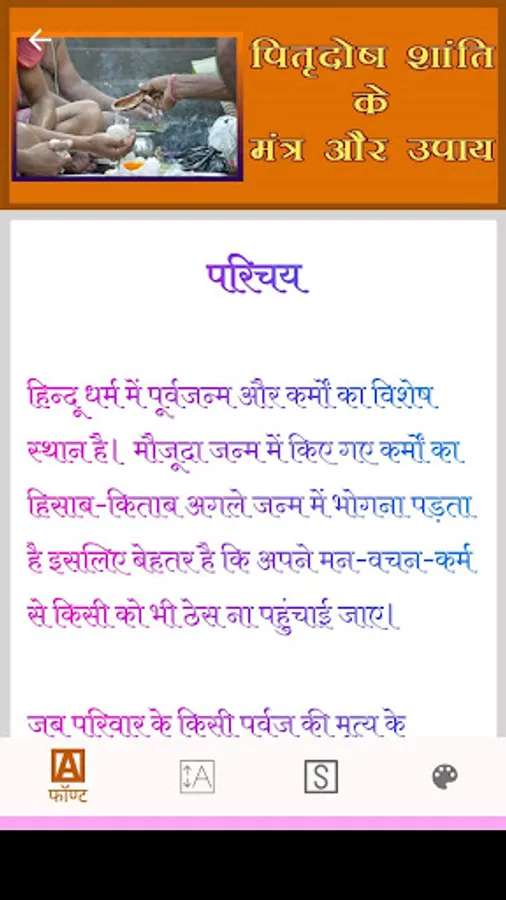 पितृदोष शांति
के
मंत्र और उपाय
परिचय
हिन्दू धर्म में पूर्वजन्म और कर्मों का विशेष
स्थान है। मौजूदा जन्म में किए गए कर्मों का
हिसाब-किताब अगले जन्म में भोगना पड़ता
है इसलिए बेहतर है कि अपने मन-वचन-कर्म
से किसी को भी ठेस ना पहुंचाई जाए।
जब परिवार के किसी पूर्वज की मृत्यु के
A
A
S
फॉण्ट